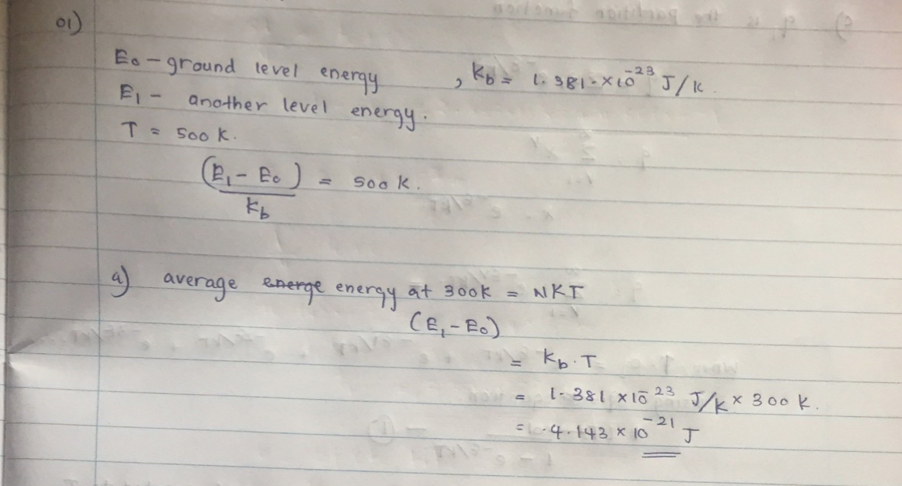 01)
E₀ - ground level energy , k_b = 1.381 × 10⁻²³ J/K
E₁ - another level energy.
T = 500 K.
(E₁ - E₀) / k_b = 500 K.
a) average energe energy at 300K = NKT
(E₁ - E₀)
= k_b · T
= 1.381 × 10⁻²³ J/K × 300 K.
= 4.143 × 10⁻²¹ J